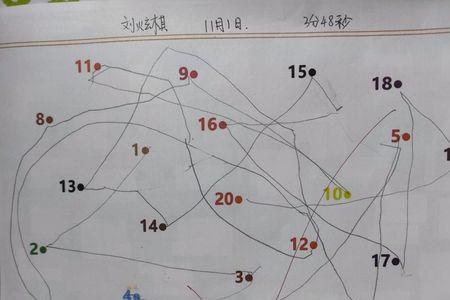 刘炫棋 11月1日. 2分48秒
11 9 15 18
8 16 5
1
13 20 10
14 12
2 17
3
4